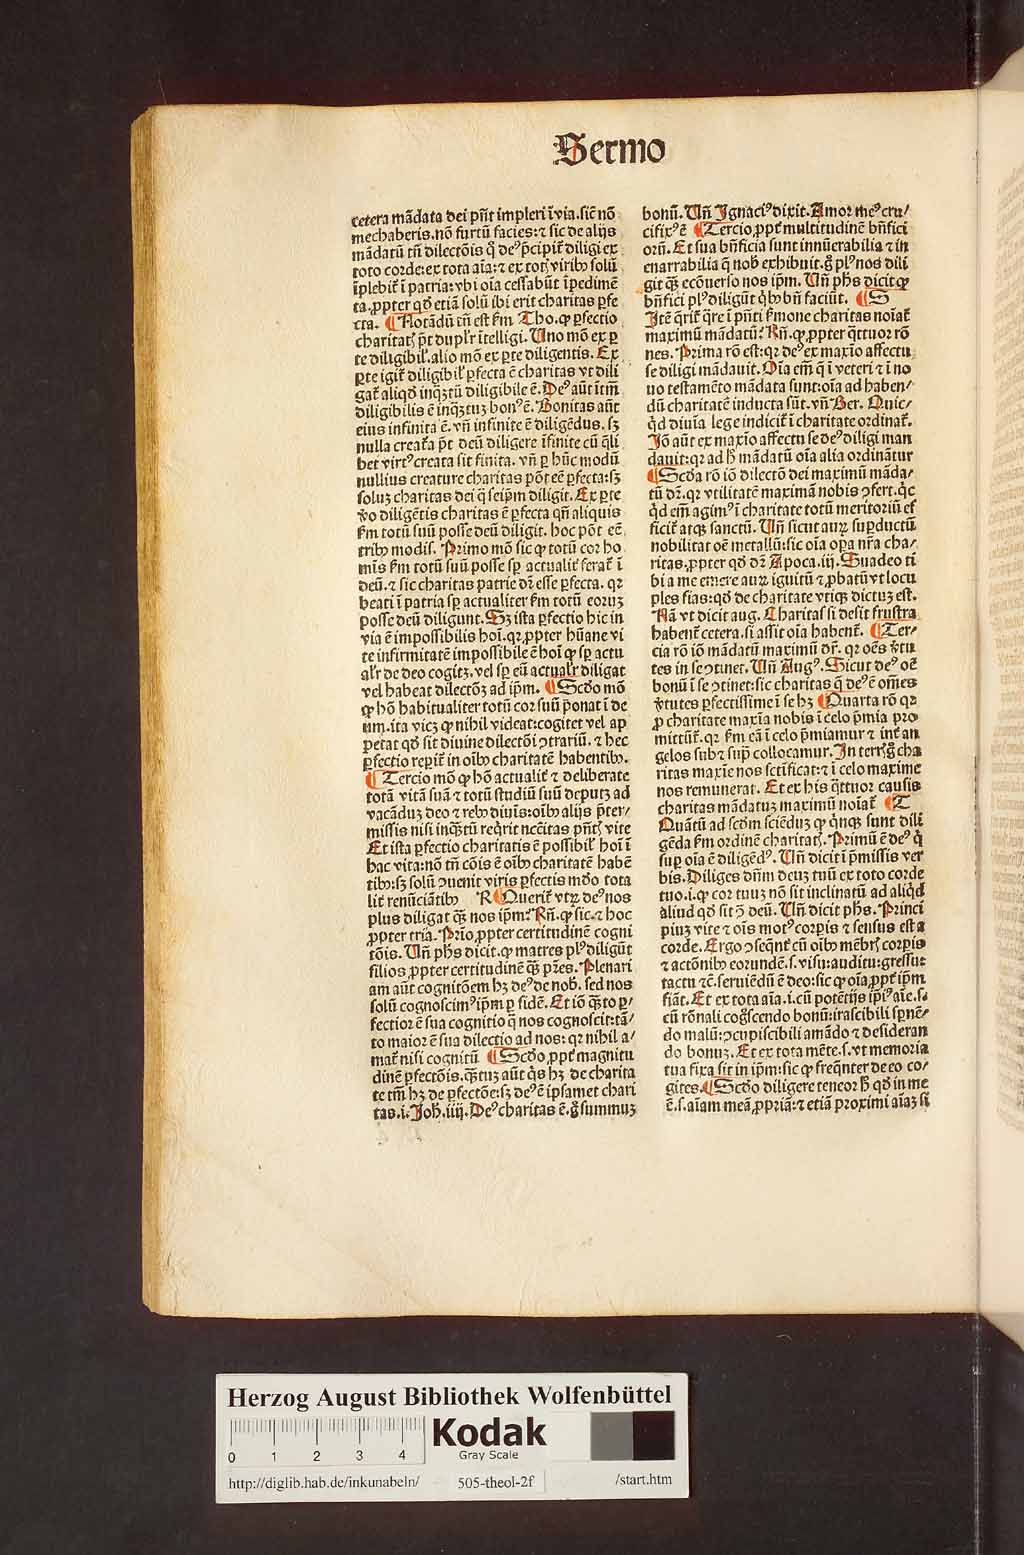 Sermo
cetera mãdata dei pñt impleri ĩ via. sic̃ nõ
mechaberis. nõ furtũ facies: ⁊ sic de alijs
mãdatũ tñ dilectõis q̃ deꝰ p̃cipit̃ diligi ex
toto corde: ex tota aĩa: ⁊ ex totꝭ viribꝰ solũ
ĩplebit̃ ĩ patria: vbi oĩa cessabũt ĩpedimẽ
ta. ꝓpter qđ etiã solũ ibi erit charitas ꝑfe
cta. ¶ Notãdũ tñ est ẜm Tho. ꝙ ꝑfectio
charitatꝭ põt duplr̃ ĩtelligi. Uno mõ ex ꝑ
te diligibilꝭ. alio mõ ex ꝑte diligentis. Ex
ꝑte igit̃ diligibilꝭ ꝑfecta ẽ charitas vt dili
gat̃ aliqđ inqᷓꝫtũ diligibile ẽ. Deꝰ aũt ĩtm̃
diligibilis ẽ inqᷓꝫtuꝫ bonꝰ ẽ. Bonitas aũt
eius infinita ẽ. vñ infinite ẽ diligẽdus. sꝫ
nulla creat̃a põt deũ diligere ĩfinite cũ q̃li
bet virtꝰ creata sit finita. vñ ꝑ hũc modũ
nullius creature charitas põt eẽ ꝑfecta: sꝫ
soluꝫ charitas dei q̃ seip̃m diligit. Ex ꝑte
ṽo diligẽtis charitas ẽ ꝑfecta qñ aliquis
ẜm totũ suũ posse deũ diligit. hoc põt eẽ
tribꝰ modis. Primo mõ sic ꝙ totũ cor ho
mĩs ẜm totũ suũ posse sꝑ actualit̃ ferat̃ ĩ
deũ. ⁊ sic charitas patrie dr̃ esse ꝑfecta. qꝛ
beati ĩ patria sꝑ actualiter ẜm totũ eoruꝫ
posse deũ diligunt. Sꝫ ista ꝑfectio hic in
via ẽ impossibilis hoĩ. qꝛ ꝓpter hũane vi
te infirmitatẽ impossibile ẽ hoĩ ꝙ sꝑ actu
alr̃ de deo cogitꝫ. vel sꝑ eũ actualr̃ diligat
vel habeat dilectõꝫ ad ip̃m. ¶ Scđo mõ
ꝙ hõ habitualiter totũ cor suũ p̃onat ĩ de
um. ita vicꝫ ꝙ nihil videat: cogitet vel ap
petat qđ sit diuine dilectõi ꝯtrariũ. ⁊ hec
ꝑfectio reperit̃ in oĩbꝰ charitatẽ habentibꝰ.
¶ Tercio mõ ꝙ hõ actualit̃ ⁊ deliberate
totã vitã suã ⁊ totũ studiũ suũ deputꝫ ad
vacãduꝫ deo ⁊ rebꝰ diuĩs: oĩbꝰ alijs p̃ter/
missis nisi inqᷓꝫtũ reqͥrit nec̃itas pñtꝭ vite
Et ista ꝑfectio charitatis ẽ possibilꝭ hoĩ ĩ
hac vita: nõ tñ cõis ẽ oĩbꝰ charitatẽ habẽ
tibꝰ: sꝫ solũ ꝯuenit viris ꝑfectis mũdo tota
lit̃ renũciãtibꝰ R ¶ Querit̃ vtꝝ deꝰ nos
plus diligat qᷓꝫ nos ip̃m? Rñ. ꝙ sic. ⁊ hoc
ꝓpter tria. Prĩo ꝓpter certitudinẽ cogni
tõis. Uñ ph̃s dicit. ꝙ matres plꝰ diligũt
filios ꝓpter certitudinẽ qᷓꝫ pr̃es. Plenari
am aũt cognitõem hꝫ deꝰ de nobꝭ. sed nos
solũ cognoscimꝰ ip̃m ꝑ fidẽ. Et iõ qᷓꝫto ꝑ/
fectior ẽ sua cognitio q̃ nos cognoscit: tã/
to maior ẽ sua dilectio ad nos: qꝛ nihil a/
mat̃ nisi cognitũ ¶ Scđo ꝓpt̃ magnitu
dinẽ ꝑfectõis. qᷓꝫtuꝫ aũt q̃s hꝫ de charita
te tm̃ hꝫ de ꝑfectõe: sꝫ deꝰ ẽ ipsamet chari
tas. i. Joh̃. iiij. Deꝰ charitas ẽ. g̃ summuꝫ
bonũ. Uñ Ignaciꝰ dixit. Amor meꝰ cru/
cifixꝰ ẽ ¶ Tercio ꝓpt̃ multitudinẽ bñfici
orũ. Et sua bñficia sunt innũerabilia ⁊ in
enarrabilia q̃ nobꝭ exhibuit. g̃ plꝰ nos dili
git qᷓꝫ ecõuerso nos ip̃m. Uñ ph̃s dicit ꝙ
bñfici plꝰ diligũt qͥbꝰ bñ faciũt. ¶ S
Itẽ q̃rit̃ q̃re ĩ pñti ẜmone charitas noĩat̃
maximũ mãdatũ? Rñ. ꝙ ꝓpter qͣttuor rõ
nes. Prima rõ est: qꝛ deꝰ ex maxĩo affectu
se diligi mãdauit. Oĩa em̃ q̃ ĩ veteri ⁊ ĩ no
uo testamẽto mãdata sunt: oĩa ad haben/
dũ charitatẽ inducta sũt. vñ Ber. Quic/
qͥd diuĩa lege indicit̃ ĩ charitate ordinat̃.
Iõ aũt ex maxĩo affectu se deꝰ diligi man
dauit: qꝛ ad h̃ mãdatũ oĩa alia ordinãtur
¶ Scđa rõ iõ dilectõ dei maximũ mãda/
tũ dr̃. qꝛ vtilitatẽ maximã nobis ꝯfert. qͥc
qͥd em̃ agimꝰ ĩ charitate totũ meritoriũ ef
ficit̃ atqꝫ sanctũ. Uñ sicut auꝝ suꝑductũ
nobilitat oẽ metallũ: sic oĩa oꝑa nr̃a cha/
ritas. ꝓpter qđ dr̃ Apoca. iij. Suadeo ti
bi a me emere auꝝ ignitũ ⁊ ꝓbatũ vt locu
ples fias: qđ de charitate vtiqꝫ dictuꝫ est.
Nã vt dicit aug. Charitas si desit frustra
habent̃ cetera. si assit oĩa habent̃. ¶ Ter/
cia rõ iõ mãdatũ maximũ dr̃. qꝛ oẽs ṽtu
tes in se ꝯtinet. Uñ Augꝰ. Sicut deꝰ oẽ
bonũ ĩ se ꝯtinet: sic charitas q̃ deꝰ ẽ om̃es
ṽtutes ꝑfectissime ĩ se hꝫ ¶ Quarta rõ qꝛ
ꝓ charitate maxĩa nobis ĩ celo p̃mia pro
mittũt̃. qꝛ ẜm eã ĩ celo p̃miamur ⁊ int̃ an
gelos sub ⁊ suꝑ collocamur. In terrꝭ g̃ cha
ritas maxĩe nos sctĩficat: ⁊ ĩ celo maxime
nos remunerat. Et ex his qͣttuor causis
charitas mãdatuꝫ maximũ noĩat̃ ¶ T
Quãtũ ad scđm sciẽduꝫ ꝙ qͥnqꝫ sunt dili
gẽda ẜm ordinẽ charitatꝭ. Primũ ẽ deꝰ q̃
suꝑ oĩa ẽ diligẽdꝰ. Uñ dicit ĩ p̃missis ver
bis. Diliges dñm deuꝫ tuũ ex toto corde
tuo. i. ꝙ cor tuuꝫ nõ sit inclinatũ ad aliqͥd
aliud qđ sit ꝯ̃ deũ. Uñ dicit ph̃s. Princi
piuꝫ vite ⁊ oĩs motꝰ corpis ⁊ sensus est a
corde. Ergo ꝯseqñt̃ cũ oĩbꝰ mẽbrꝭ corpis
⁊ actõnibꝰ eorundẽ. s. visu: auditu: gressu:
tactu ⁊c̃. seruiẽdũ ẽ deo: sic ꝙ oĩa ꝓpt̃ ip̃m
fiãt. Et ex tota aĩa. i. cũ potẽtijs ip̃iꝰ aĩe. s.
cũ rõnali cog̃scendo bonũ: irascibili spnẽ/
do malũ: ꝯcupiscibili amãdo ⁊ desideran
do bonuꝫ. Et ex tota mẽte. s. vt memoria
tua fixa sit in ip̃m: sic ꝙ freqñter de eo co/
gites. ¶ Scđo diligere teneor h̃ qđ in me
ẽ. s. aĩam meã ꝓpriã: ⁊ etiã proximi aĩaꝫ si
Herzog August Bibliothek Wolfenbüttel
0 1 2 3 4
Kodak
Gray Scale
http://diglib.hab.de/inkunabeln/ 505-theol-2f /start.htm